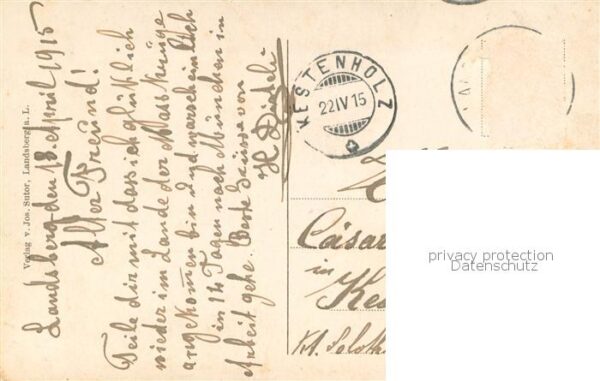 Landsberg den 18. April 1915
Alter Freund!
Teile dir mit dass ich glücklich
wieder im Lande der Mass Krüge
angekommen bin und warscheinlich
in 14 Tagen nach München in
Arbeit gehe. Beste Grüsse von
Verlag v. Jos. Sutor, Landsberg a. L.
KESTENHOLZ
22 IV 15
Cäsar
in
Ke
Kt. Soloth
privacy protection
Datenschutz